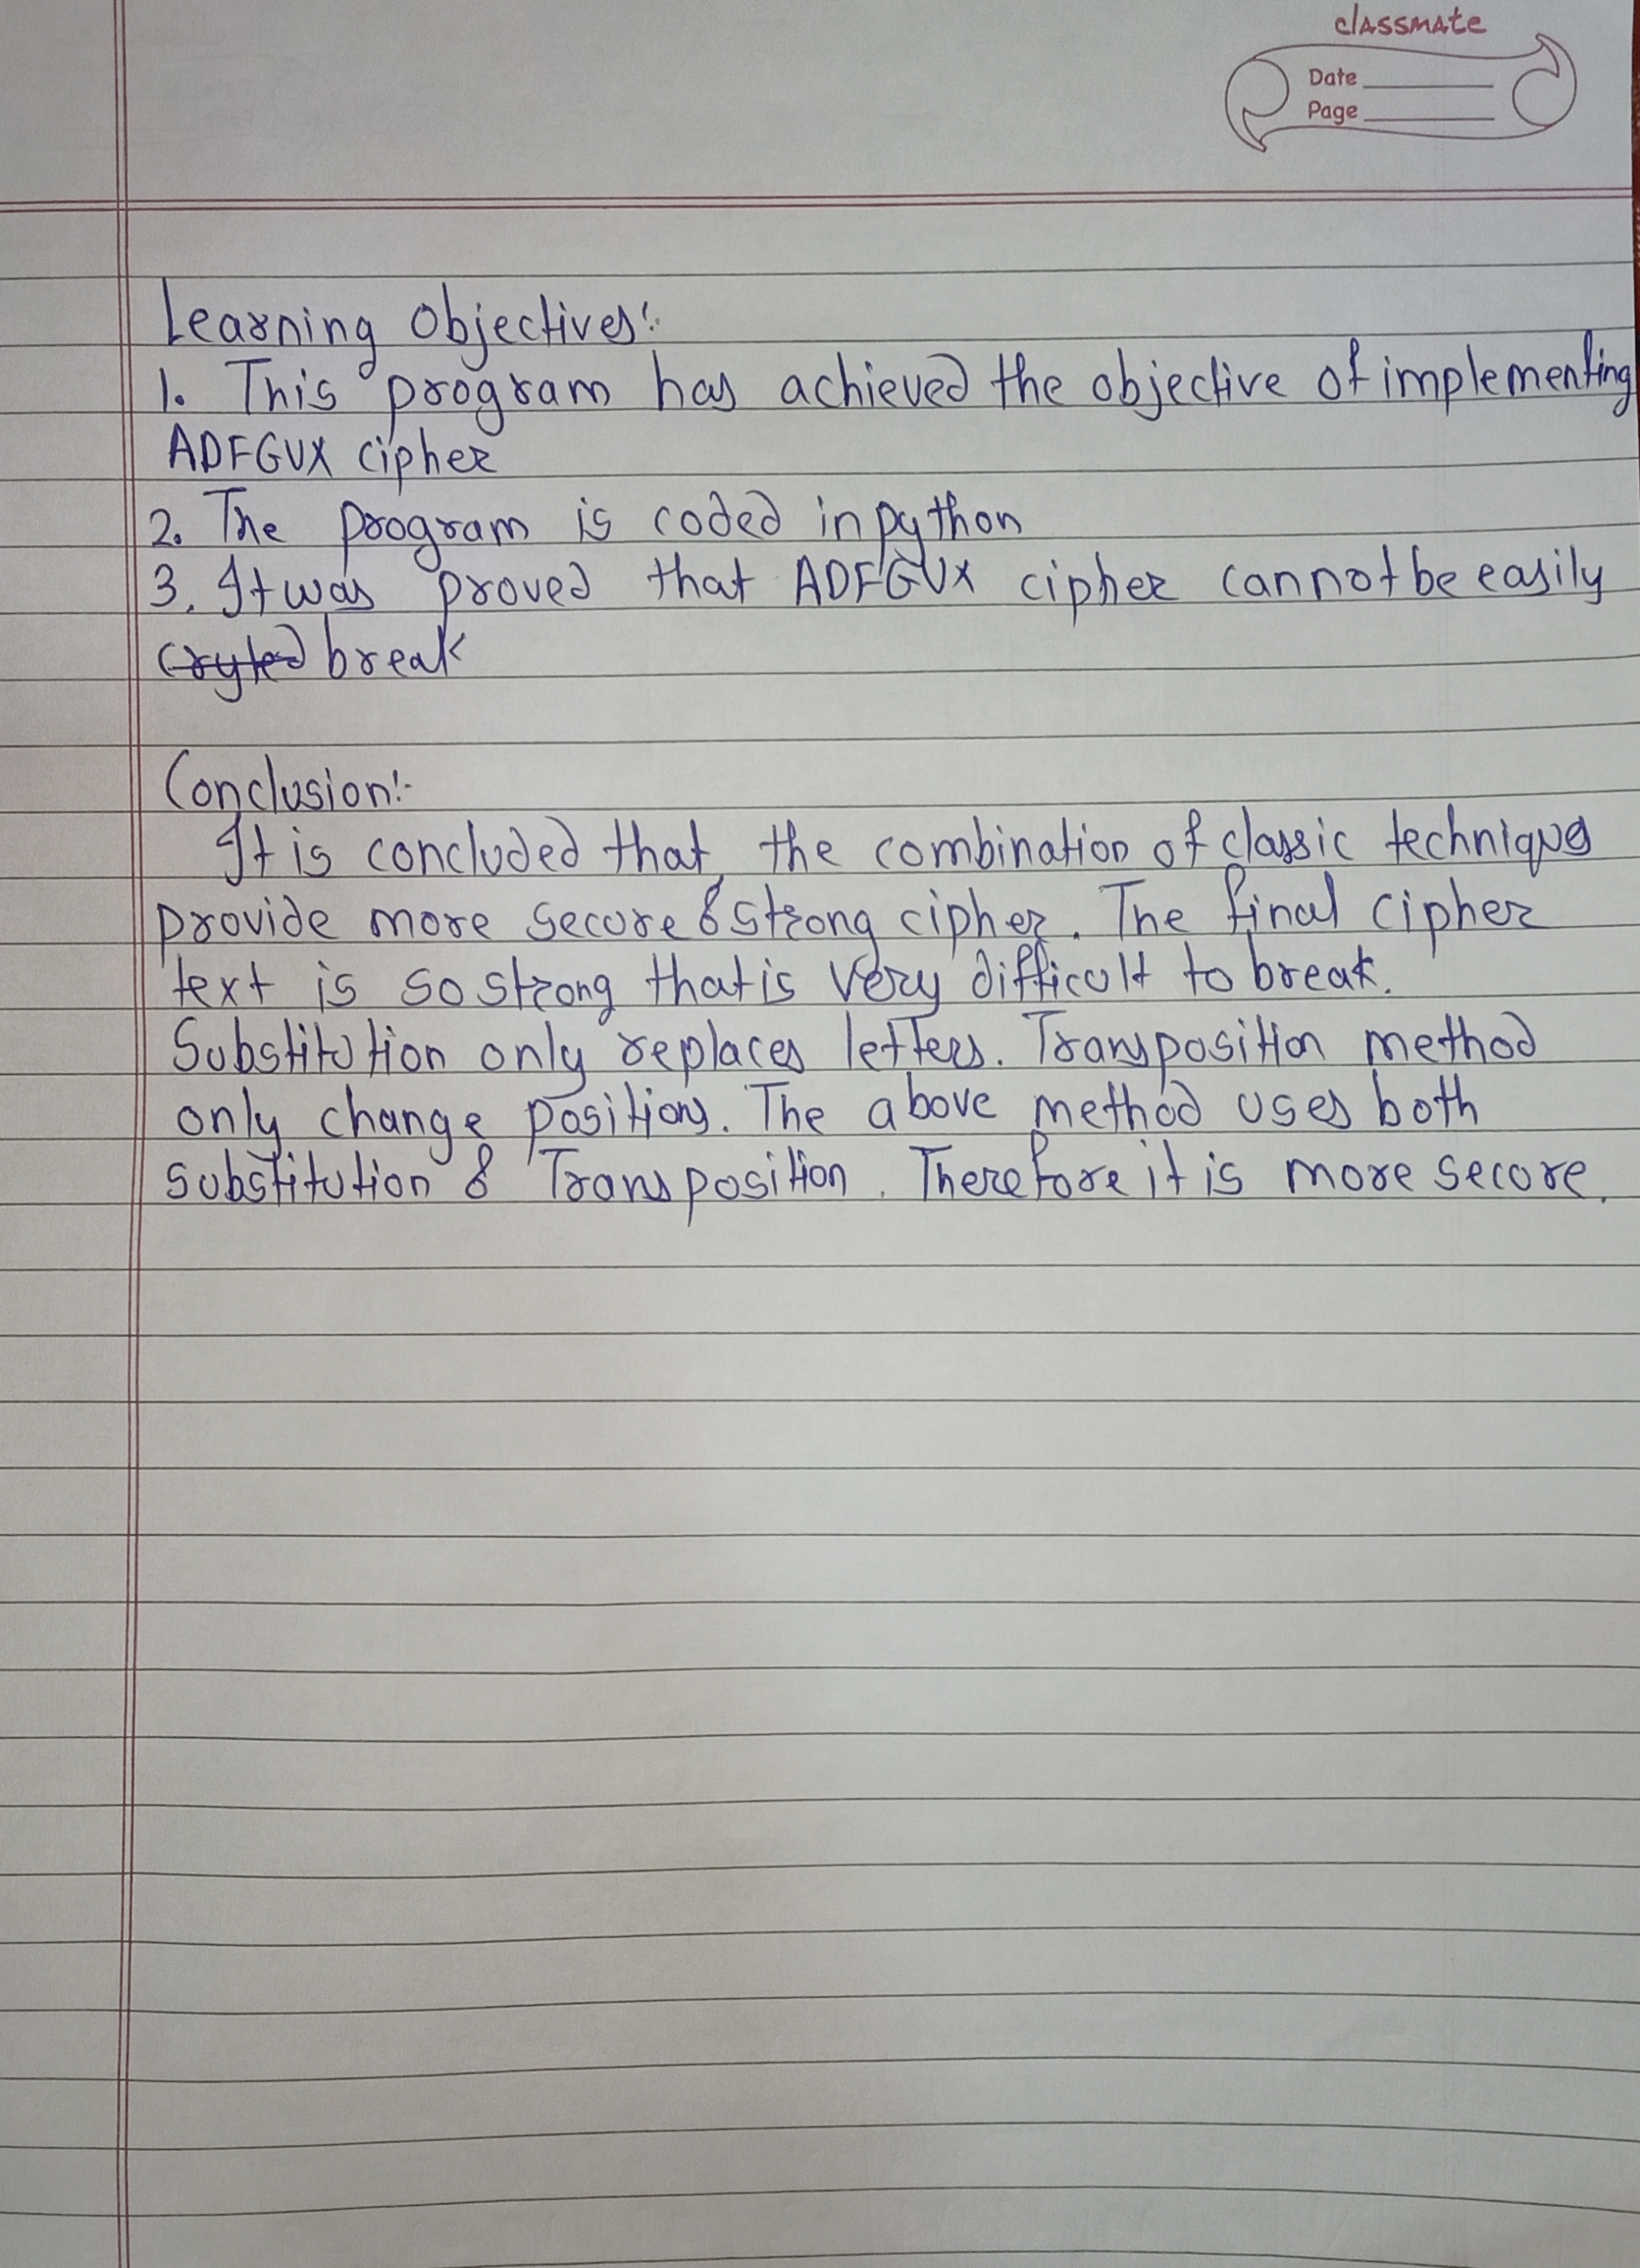 classmate
Date
Page
Learning Objectives:
1. This program has achieved the objective of implementing
ADFGVX cipher
2. The program is coded in python
3. It was proved that ADFGVX cipher cannot be easily
break
Conclusion:-
It is concluded that, the combination of classic techniques
provide more secure & strong cipher. The final cipher
text is so strong that is very difficult to break.
Substitution only replaces letters. Transposition method
only change positions. The above method uses both
substitution & Transposition. Therefore it is more secure.